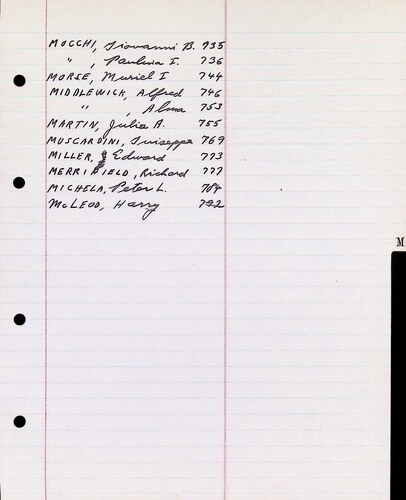 MOCCHI, Giovanni B. 735
" , Paulina I. 736
MORSE, Muriel I 744
MIDDLEWICK, Alfred 746
" , Alma 753
MARTIN, Julia A. 755
MUSCARDINI, Guiseppe 769
MILLER, Edward 773
MERRIFIELD, Richard 777
MICHELA, Peter L. 784
McLEOD, Harry 792
M